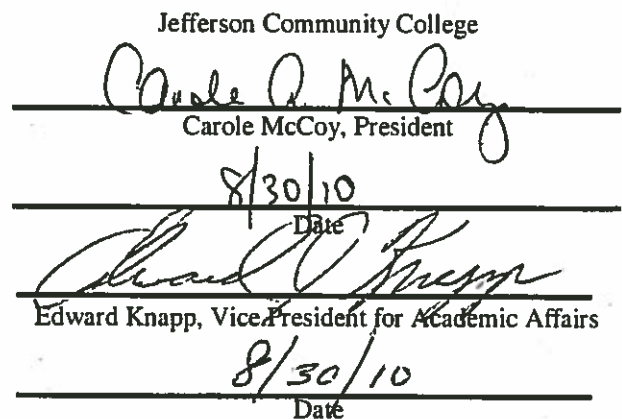 Jefferson Community College
Carole A. McCoy
Carole McCoy, President
8/30/10
Date
Edward Knapp
Edward Knapp, Vice President for Academic Affairs
8/30/10
Date